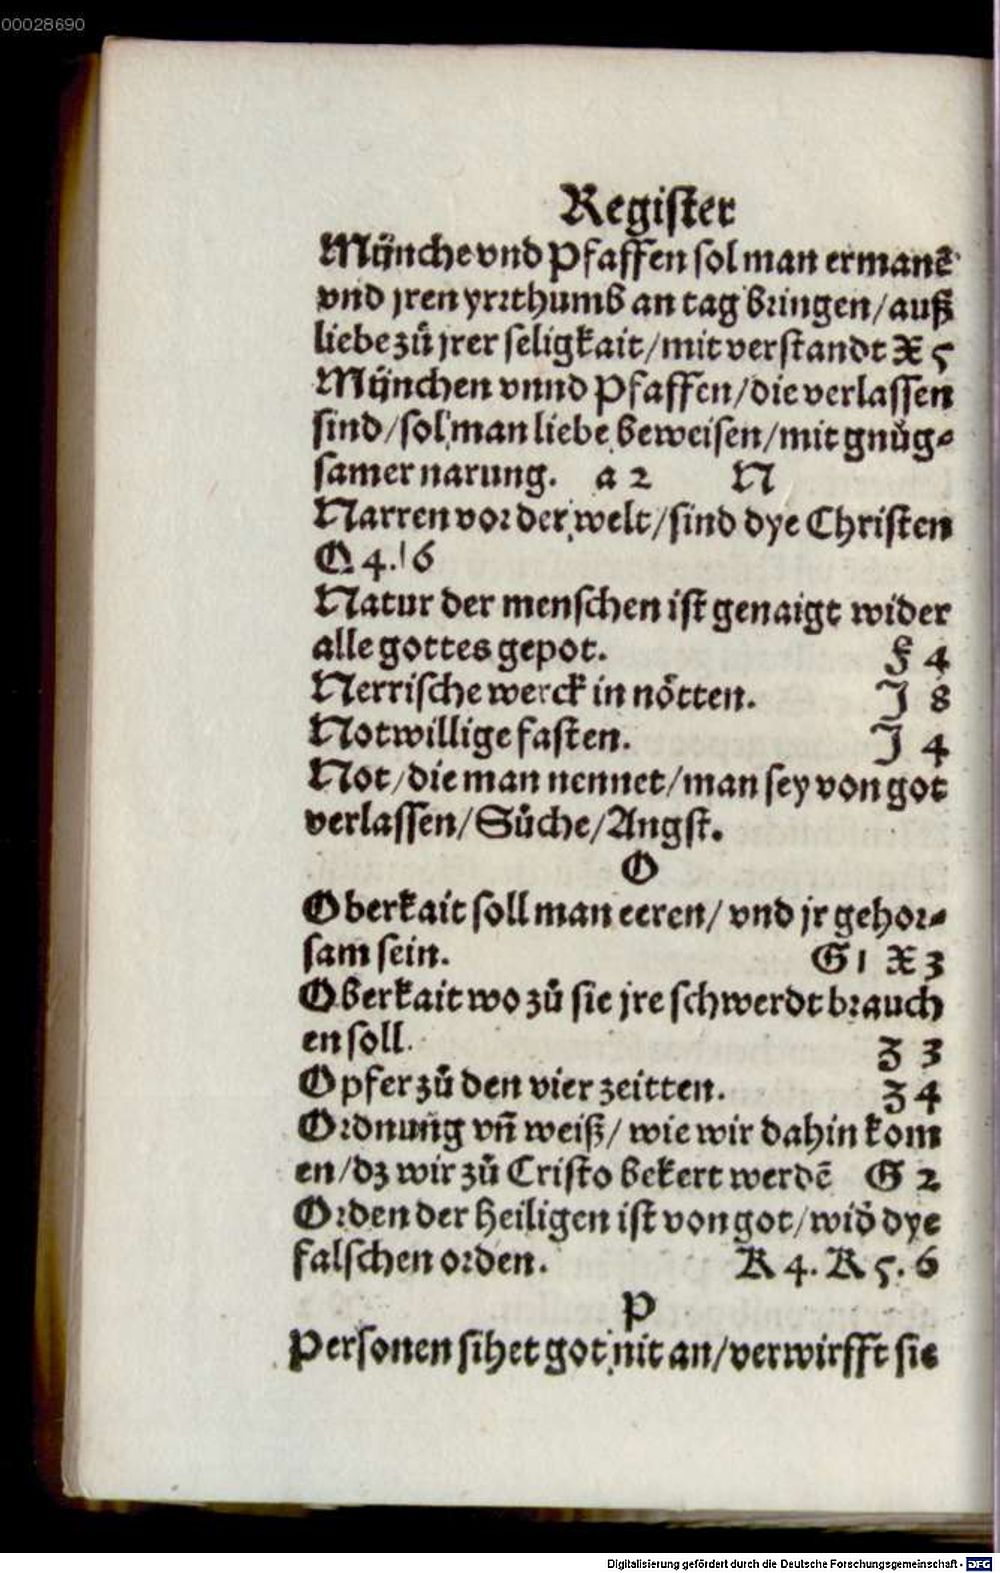 00028690
Register
Münche vnd Pfaffen sol man ermanē
vnd jren yrrthumb an tag bringen/auß
liebe zů jrer seligkait/mit verstandt X 5
München vnnd Pfaffen/die verlassen
sind/sol man liebe beweisen/mit gnůg⸗
samer narung. a 2 N
Narren vor der welt/sind dye Christen
Q 4. 6
Natur der menschen ist genaigt wider
alle gottes gepot. F 4
Nerrische werck in nötten. J 8
Notwillige fasten. J 4
Not/die man nennet/man sey von got
verlassen/Sůche/Angst.
O
Oberkait soll man eeren/ vnd jr gehor⸗
sam sein. G 1 X 3
Oberkait wo zů sie jre schwerdt brauch
en soll. Z 3
Opfer zů den vier zeitten. Z 4
Ordnung vn̄ weiß/ wie wir dahin kom
en/dz wir zů Cristo bekert werdē G 2
Orden der heiligen ist von got/wid̓ dye
falschen orden. K 4. K 5. 6
P
Personen sihet got nit an/verwirfft sie
Digitalisierung gefördert durch die Deutsche Forschungsgemeinschaft - DFG